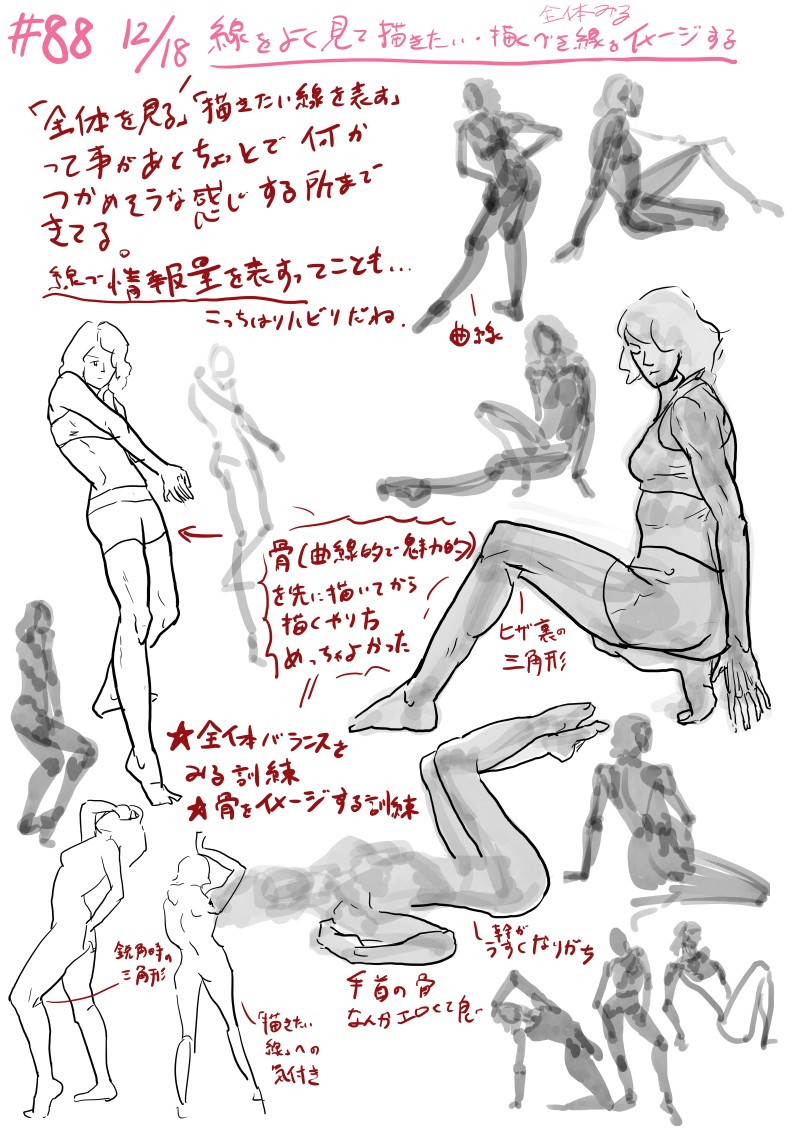 #88 12/18 線をよく見て描きたい・描くべき線。イメージする
全体みる
「全体を見る」「描きたい線を表す」
って事があとちょっとで何か
つかめそうな感じする所まで
きてる。
線で情報量を表すってことも…
こっちはリハビリだね.
曲線
骨(曲線的で魅力的)
を先に描いてから
描くやり方
めっちゃよかった
ヒザ裏の
三角形
★全体バランスを
みる訓練
★骨をイメージする訓練
鋭角時の
三角形
幹が
うすくなりがち
手首の骨
なんかエロくて良い
「描きたい
線」への
気付き